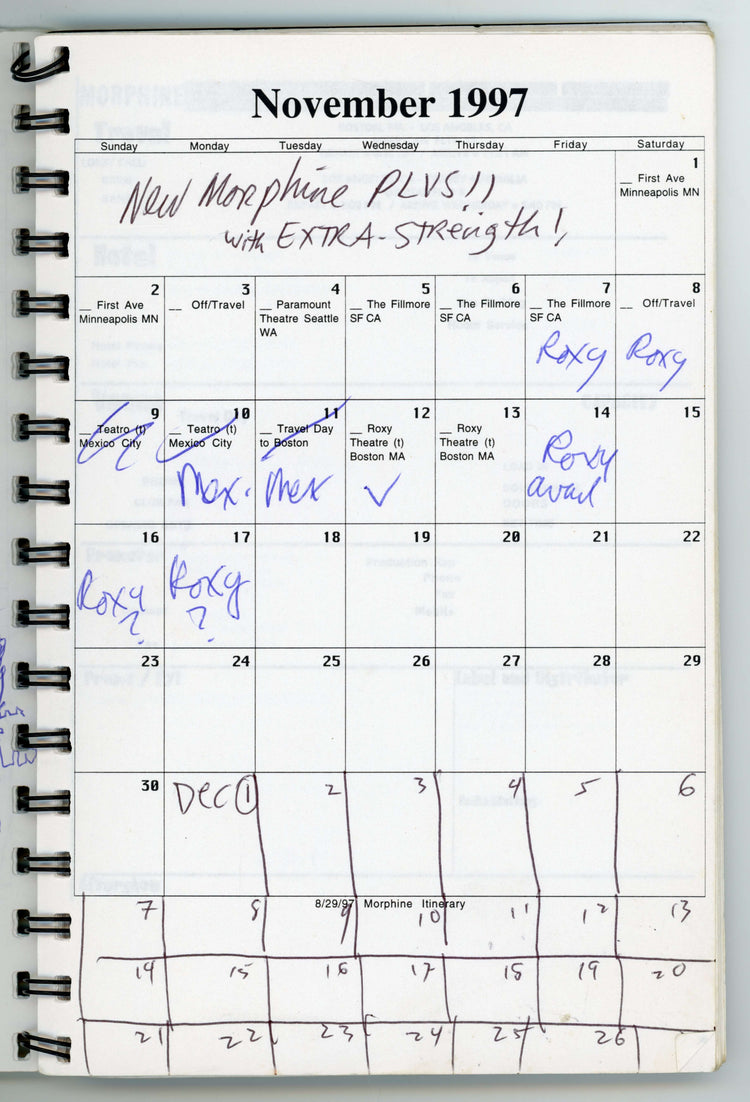 November 1997
Sunday Monday Tuesday Wednesday Thursday Friday Saturday
New Morphine PLUS!!
with EXTRA-Strength!
1
__ First Ave
Minneapolis MN
2
__ First Ave
Minneapolis MN
3
__ Off/Travel
4
__ Paramount
Theatre Seattle
WA
5
__ The Fillmore
SF CA
6
__ The Fillmore
SF CA
7
__ The Fillmore
SF CA
Roxy
8
__ Off/Travel
Roxy
9
__ Teatro (t)
Mexico City
10
__ Teatro (t)
Mexico City
Mex.
11
__ Travel Day
to Boston
Mex
12
__ Roxy
Theatre (t)
Boston MA
✓
13
__ Roxy
Theatre (t)
Boston MA
14
Roxy
avail
15
16
Roxy
?
17
Roxy
?
18
19
20
21
22
23
24
25
26
27
28
29
30
Dec 1
2
3
4
5
6
8/29/97 Morphine Itinerary
7 8 9 10 11 12 13
14 15 16 17 18 19 20
21 22 23 24 25 26